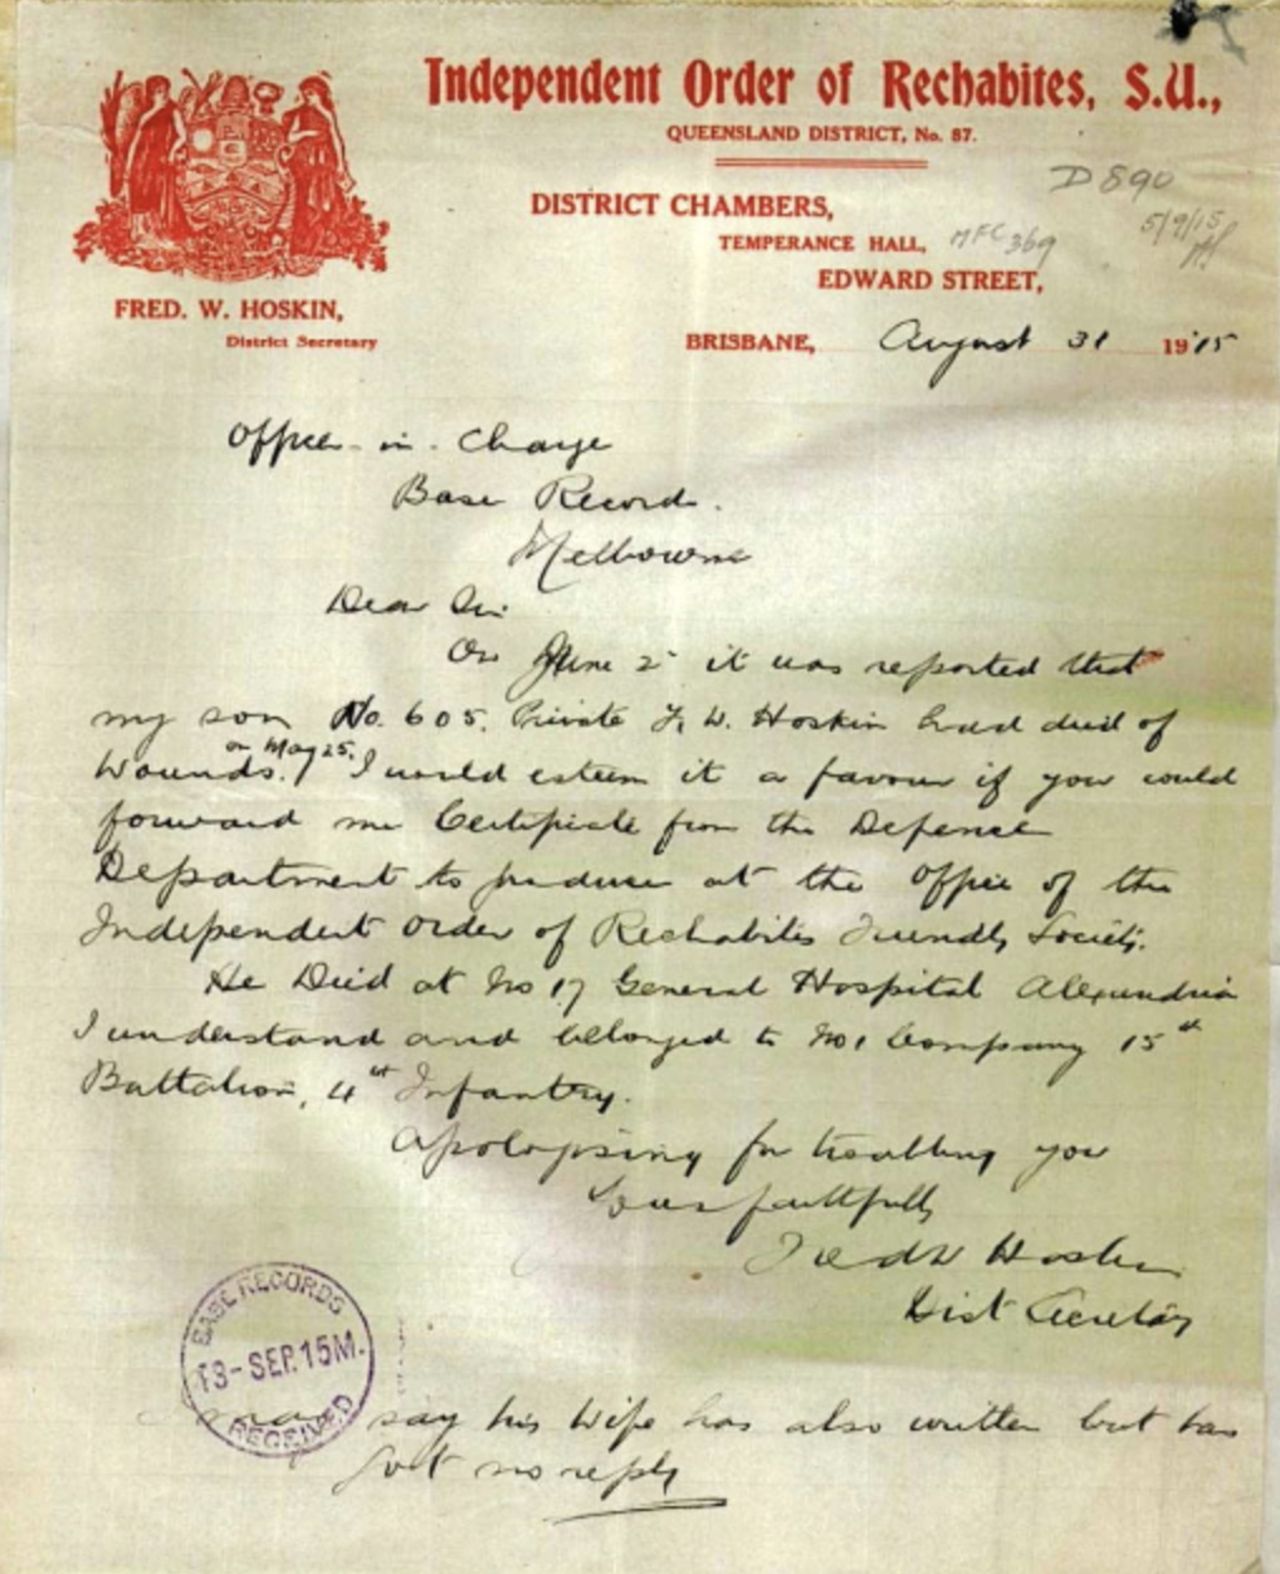 Independent Order of Rechabites, S.U.,
QUEENSLAND DISTRICT, No. 87.
D 890
5/9/15
DISTRICT CHAMBERS,
TEMPERANCE HALL,
MFC 369
EDWARD STREET,
FRED. W. HOSKIN,
District Secretary
BRISBANE, August 31 1915
Officer in Charge
Base Record.
Melbourne
Dear Sir
On June 2 it was reported that
my son No. 605. Private F. W. Hoskin had died of
Wounds. on May 25. I would esteem it a favour if you could
forward me Certificate from the Defence
Department to produce at the Office of the
Independent Order of Rechabites Friendly Society.
He Died at No 17 General Hospital Alexandria
I understand and belonged to No 1 Company 15th
Battalion, 4th Infantry.
Apologising for troubling you
Yours faithfully
Fred W Hoskin
Dist Secretary
BASE RECORDS
13-SEP.15M.
RECEIVED
I may say his Wife has also written but has
got no reply